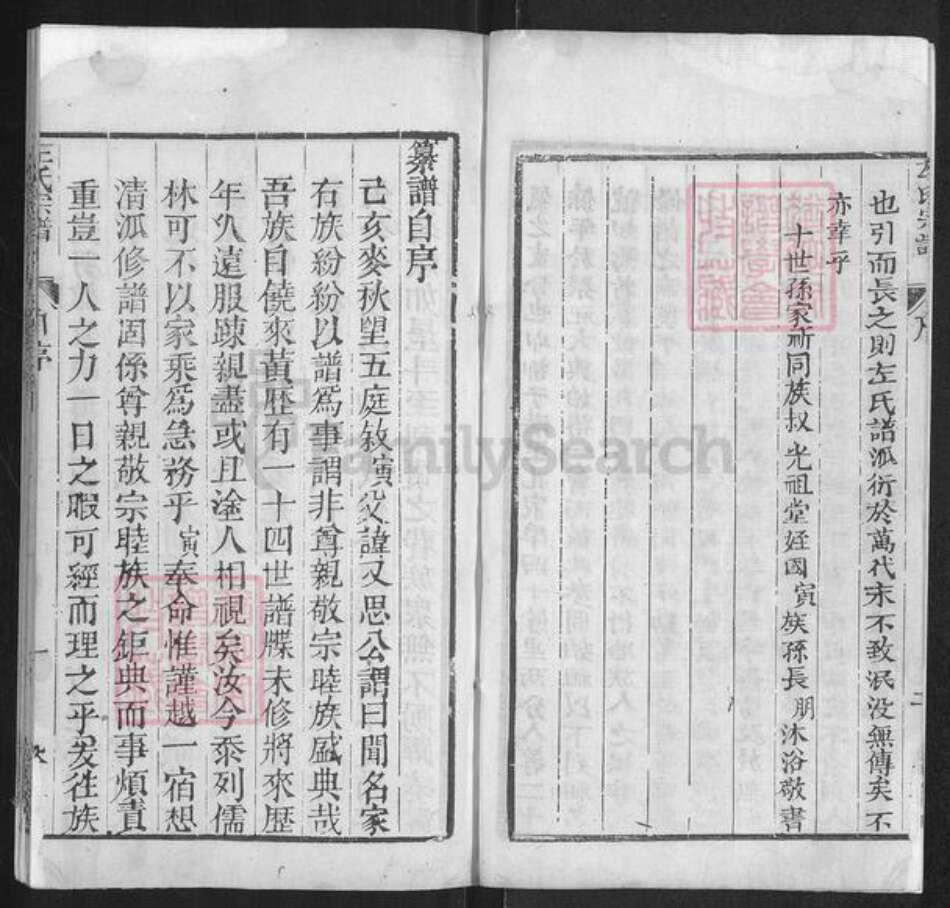 左氏宗譜
序
二
也引而長之則左氏譜派衍於萬代末不致泯没無傳矣不
亦幸乎
十世孫家祈同族叔光祖堂姪國寅族孫長朋沐浴敬書
纂譜自序
己亥麥秋望五庭敘寅父諱又思公謂曰聞名家
右族紛紛以譜爲事謂非尊親敬宗睦族盛典哉
吾族自饒來黃歷有一十四世譜牒未修將來歷
年久遠服踈親盡或且塗人相視矣汝今忝列儒
林可不以家乘爲急務乎寅奉命惟謹越一宿想
清派修譜固係尊親敬宗睦族之鉅典而事煩責
重豈一人之力一日之暇可經而理之乎爰徃族
左氏宗譜
自序
一
FamilySearch